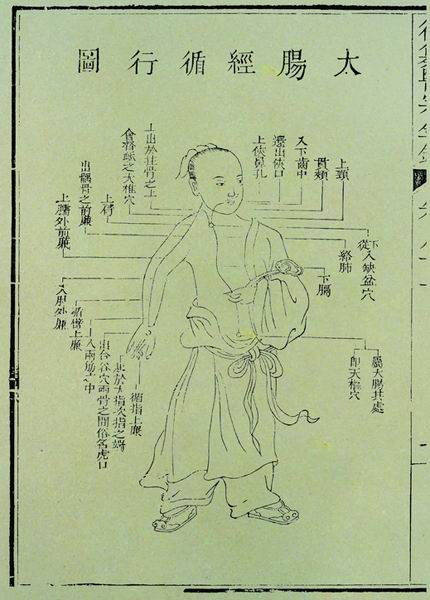 太腸經循行圖
上頸
貫頰
入下齒中
還出俠口
上俠鼻孔
上出於柱骨之上
會督脈之大椎穴
出髃骨之前廉
上肩
上臑外前廉
下入缺盆穴
絡肺
下膈
屬大腸共處
即天樞穴
循指上廉
起於大指次指之端
出合谷穴兩骨之間俗名虎口
入兩筋之中
循臂上廉
入肘外廉